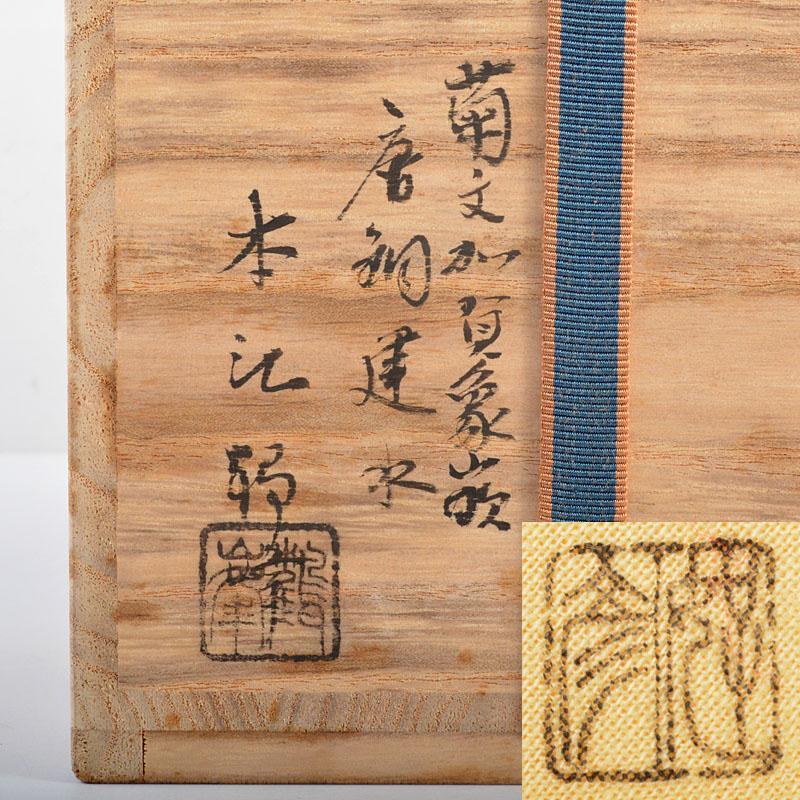 菊文加賀象嵌
唐銅建水
本江